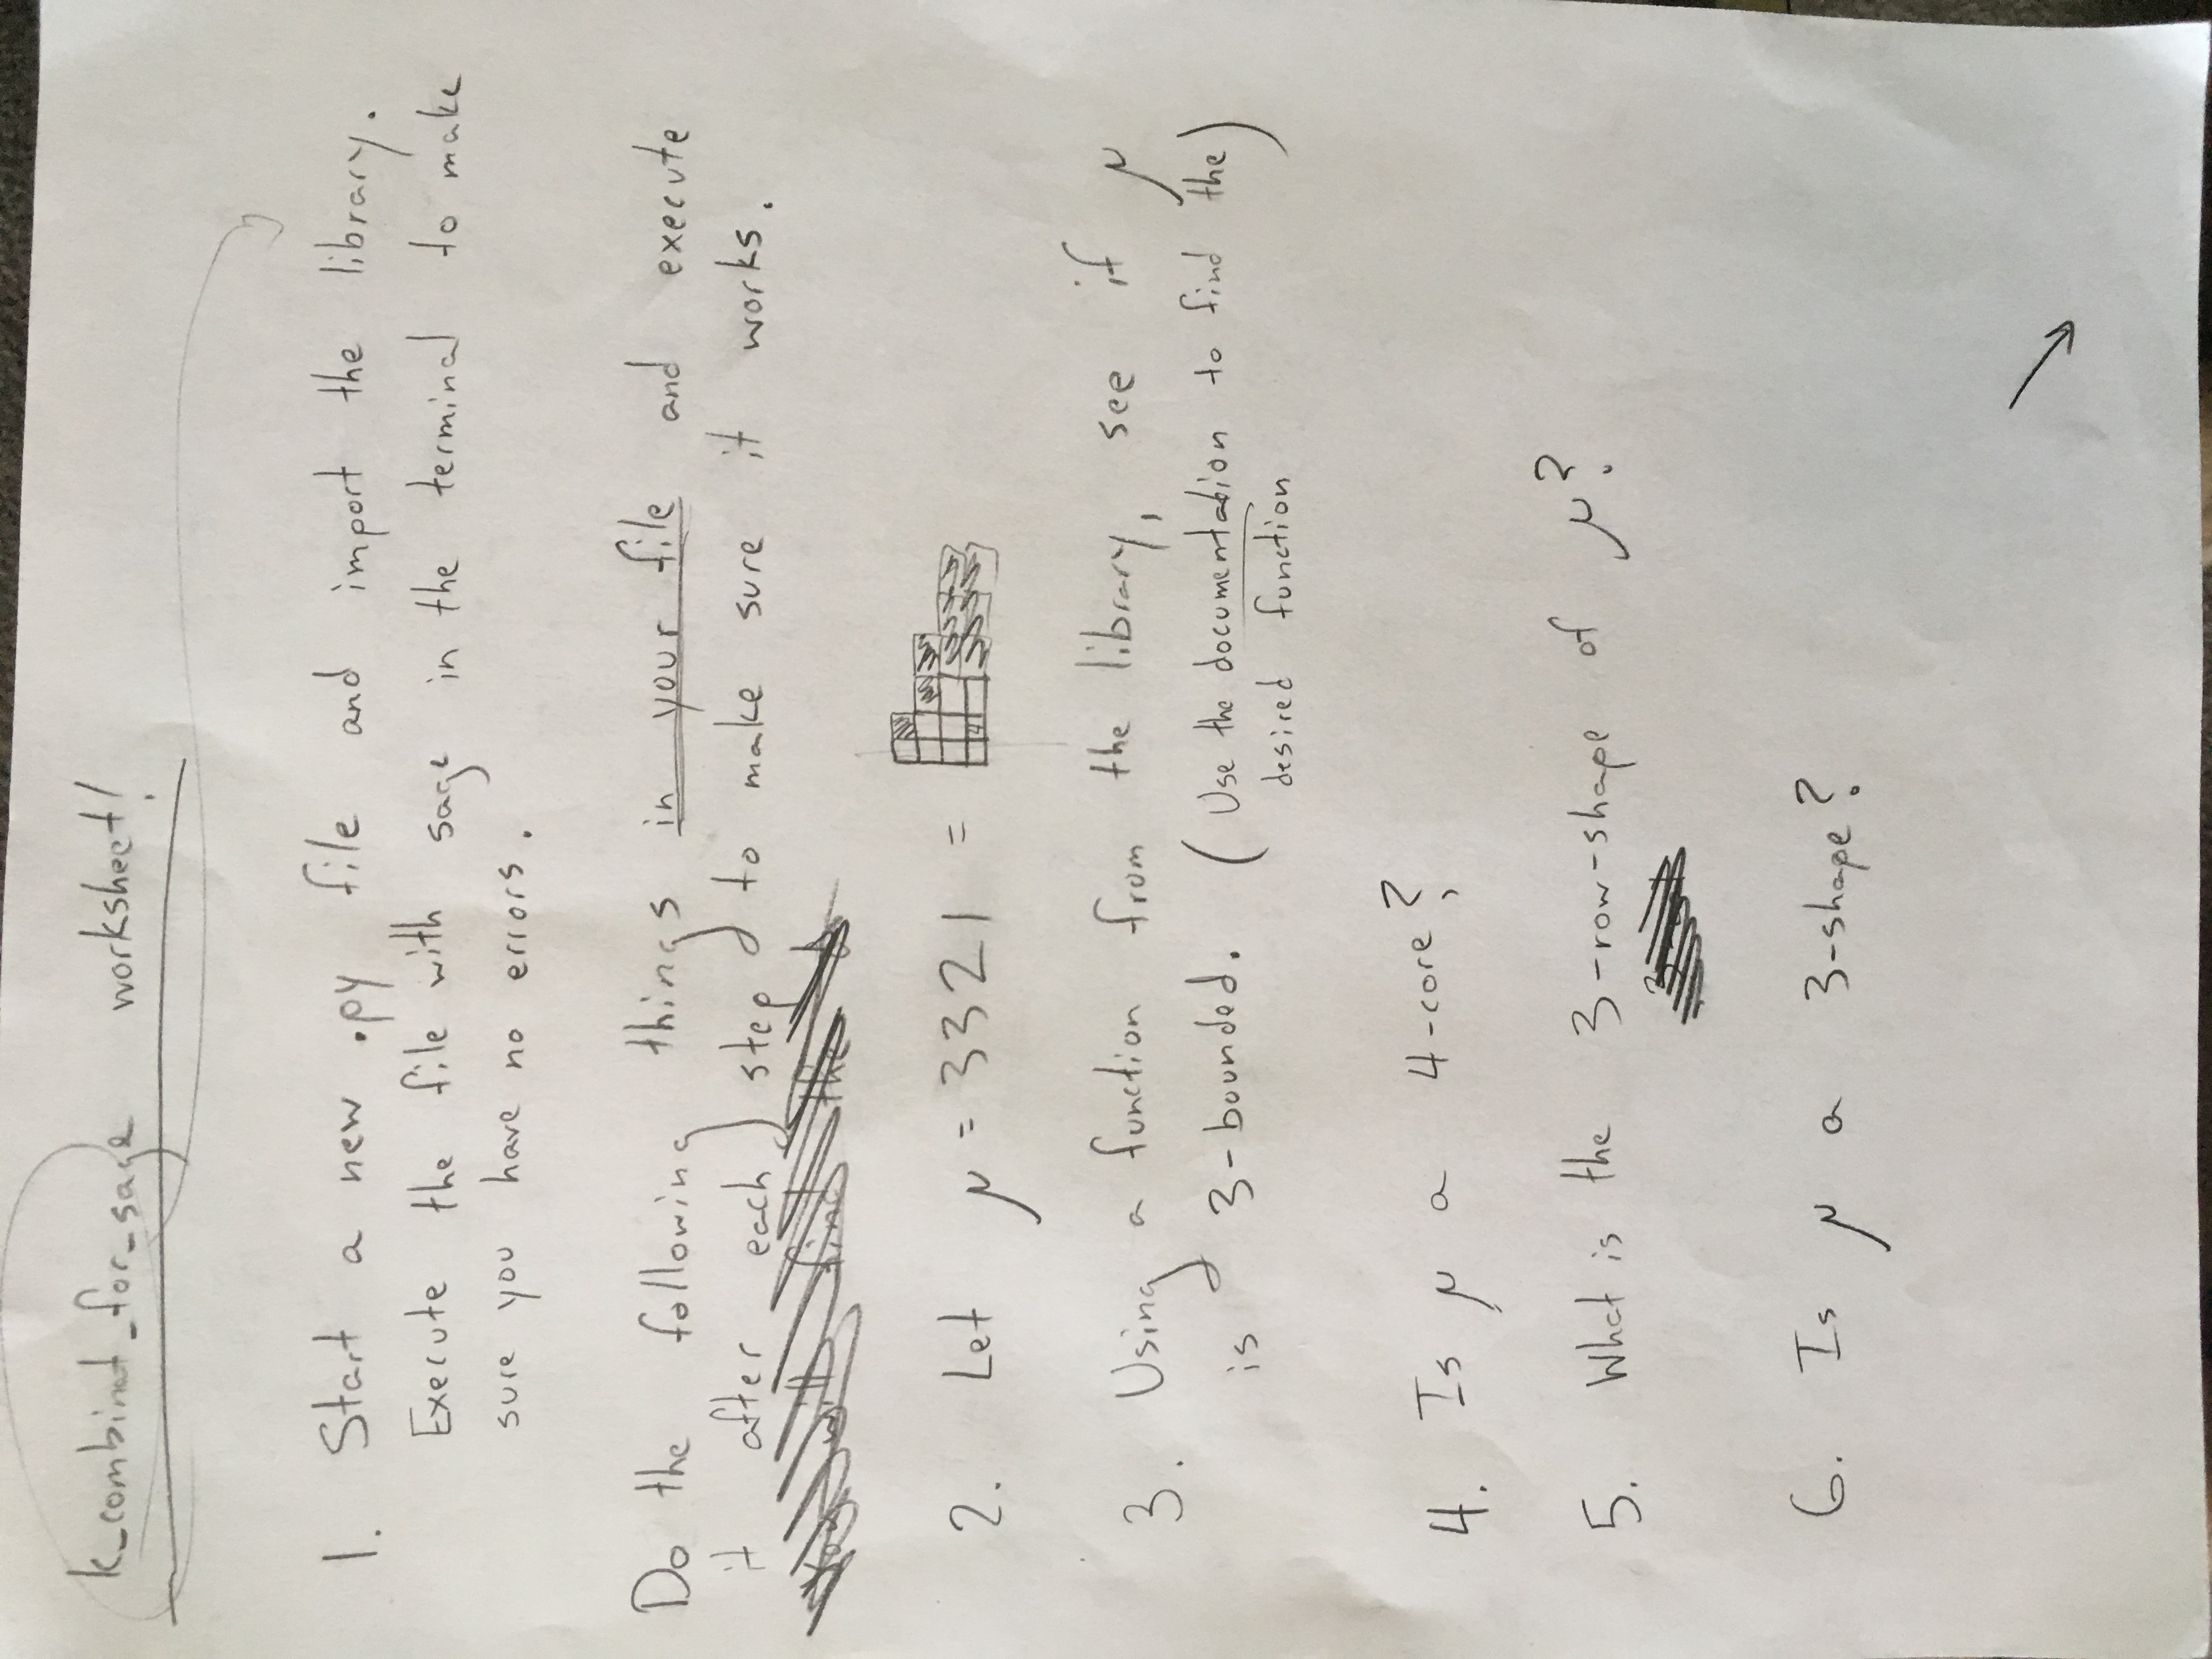 k_combinat_for_sage worksheet!
1. Start a new .py file and import the library.
Execute the file with sage in the terminal to make
sure you have no errors.
Do the following things in your file and execute
it after each step to make sure it works.
You will find the
2. Let μ = 3321 =
3. Using a function from the library, see if μ
is 3-bounded. (Use the documentation to find the)
desired function
4. Is μ a 4-core?
5. What is the 3-row-shape of μ?
6. Is μ a 3-shape?